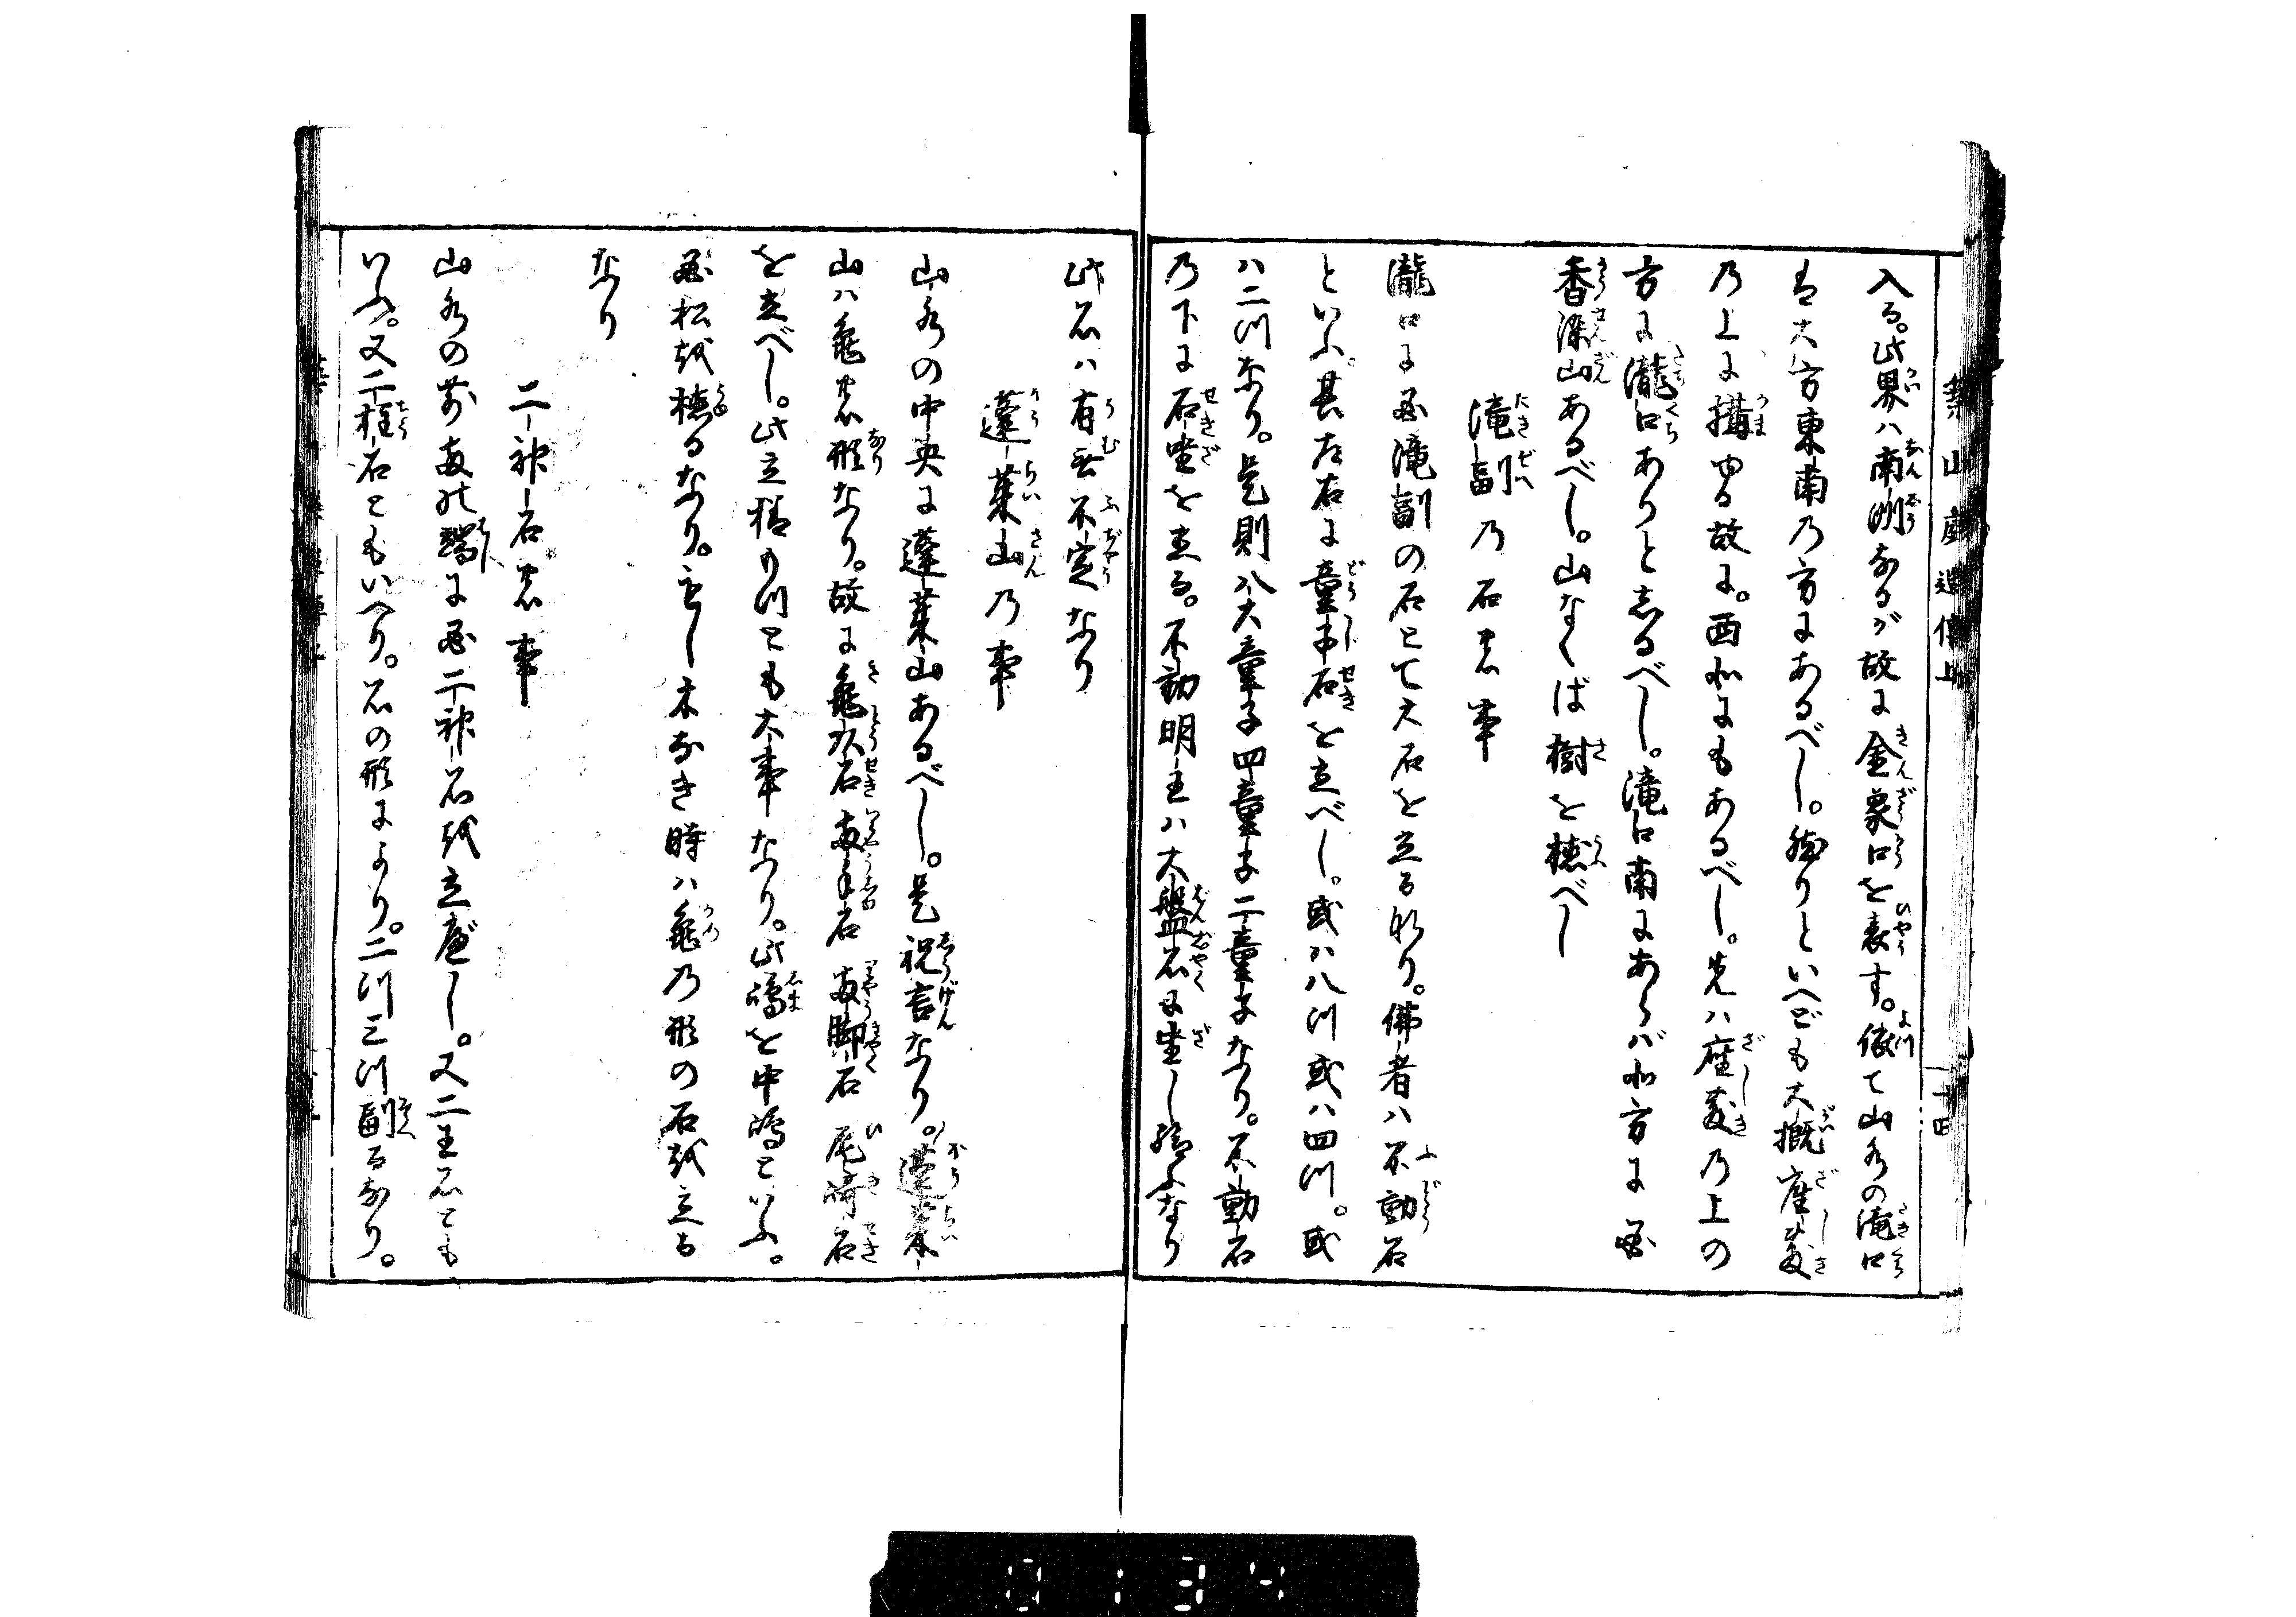 築山庭造傳上 十四
入る。此界ハ南洲なるが故に金象口を表す。依て山水の滝口
は大方東南の方にあるべし。然りといへども大概座敷
の上に搆ゆる故に。西北にもあるべし。先ハ座敷の上の
方に瀧口ありと志るべし。滝口南にあらバ北方に
香深山あるべし。山なくば樹を植べし
滝副の石之事
瀧口に滝副の石とて大石を立る也り。佛者ハ不動石
といふ。其左右に童子石を立べし。或ハ八ツ或ハ四ツ。或
ハ二ツなり。是則八大童子四童子二童子なり。不動石
の下に石坐を立る。不動明王ハ大盤石に坐し給ふなり
此石ハ有無不定なり
蓬莱山の事
山水の中央に蓬莱山あるべし。是祝言なり。蓬莱
山ハ亀之形なり。故に亀頭石両手石両脚石尾崎石
を立べし。此立様かつとも大事なり。此嶋を中嶋といふ。
松越植るなり。もし木なき時ハ亀乃形の石越立る
なり
二神石之事
山水の前両の端に二神石越立べし。又二王石とも
いふ。又二柱石ともいへり。石の形により。二ツ三ツ副るなり。